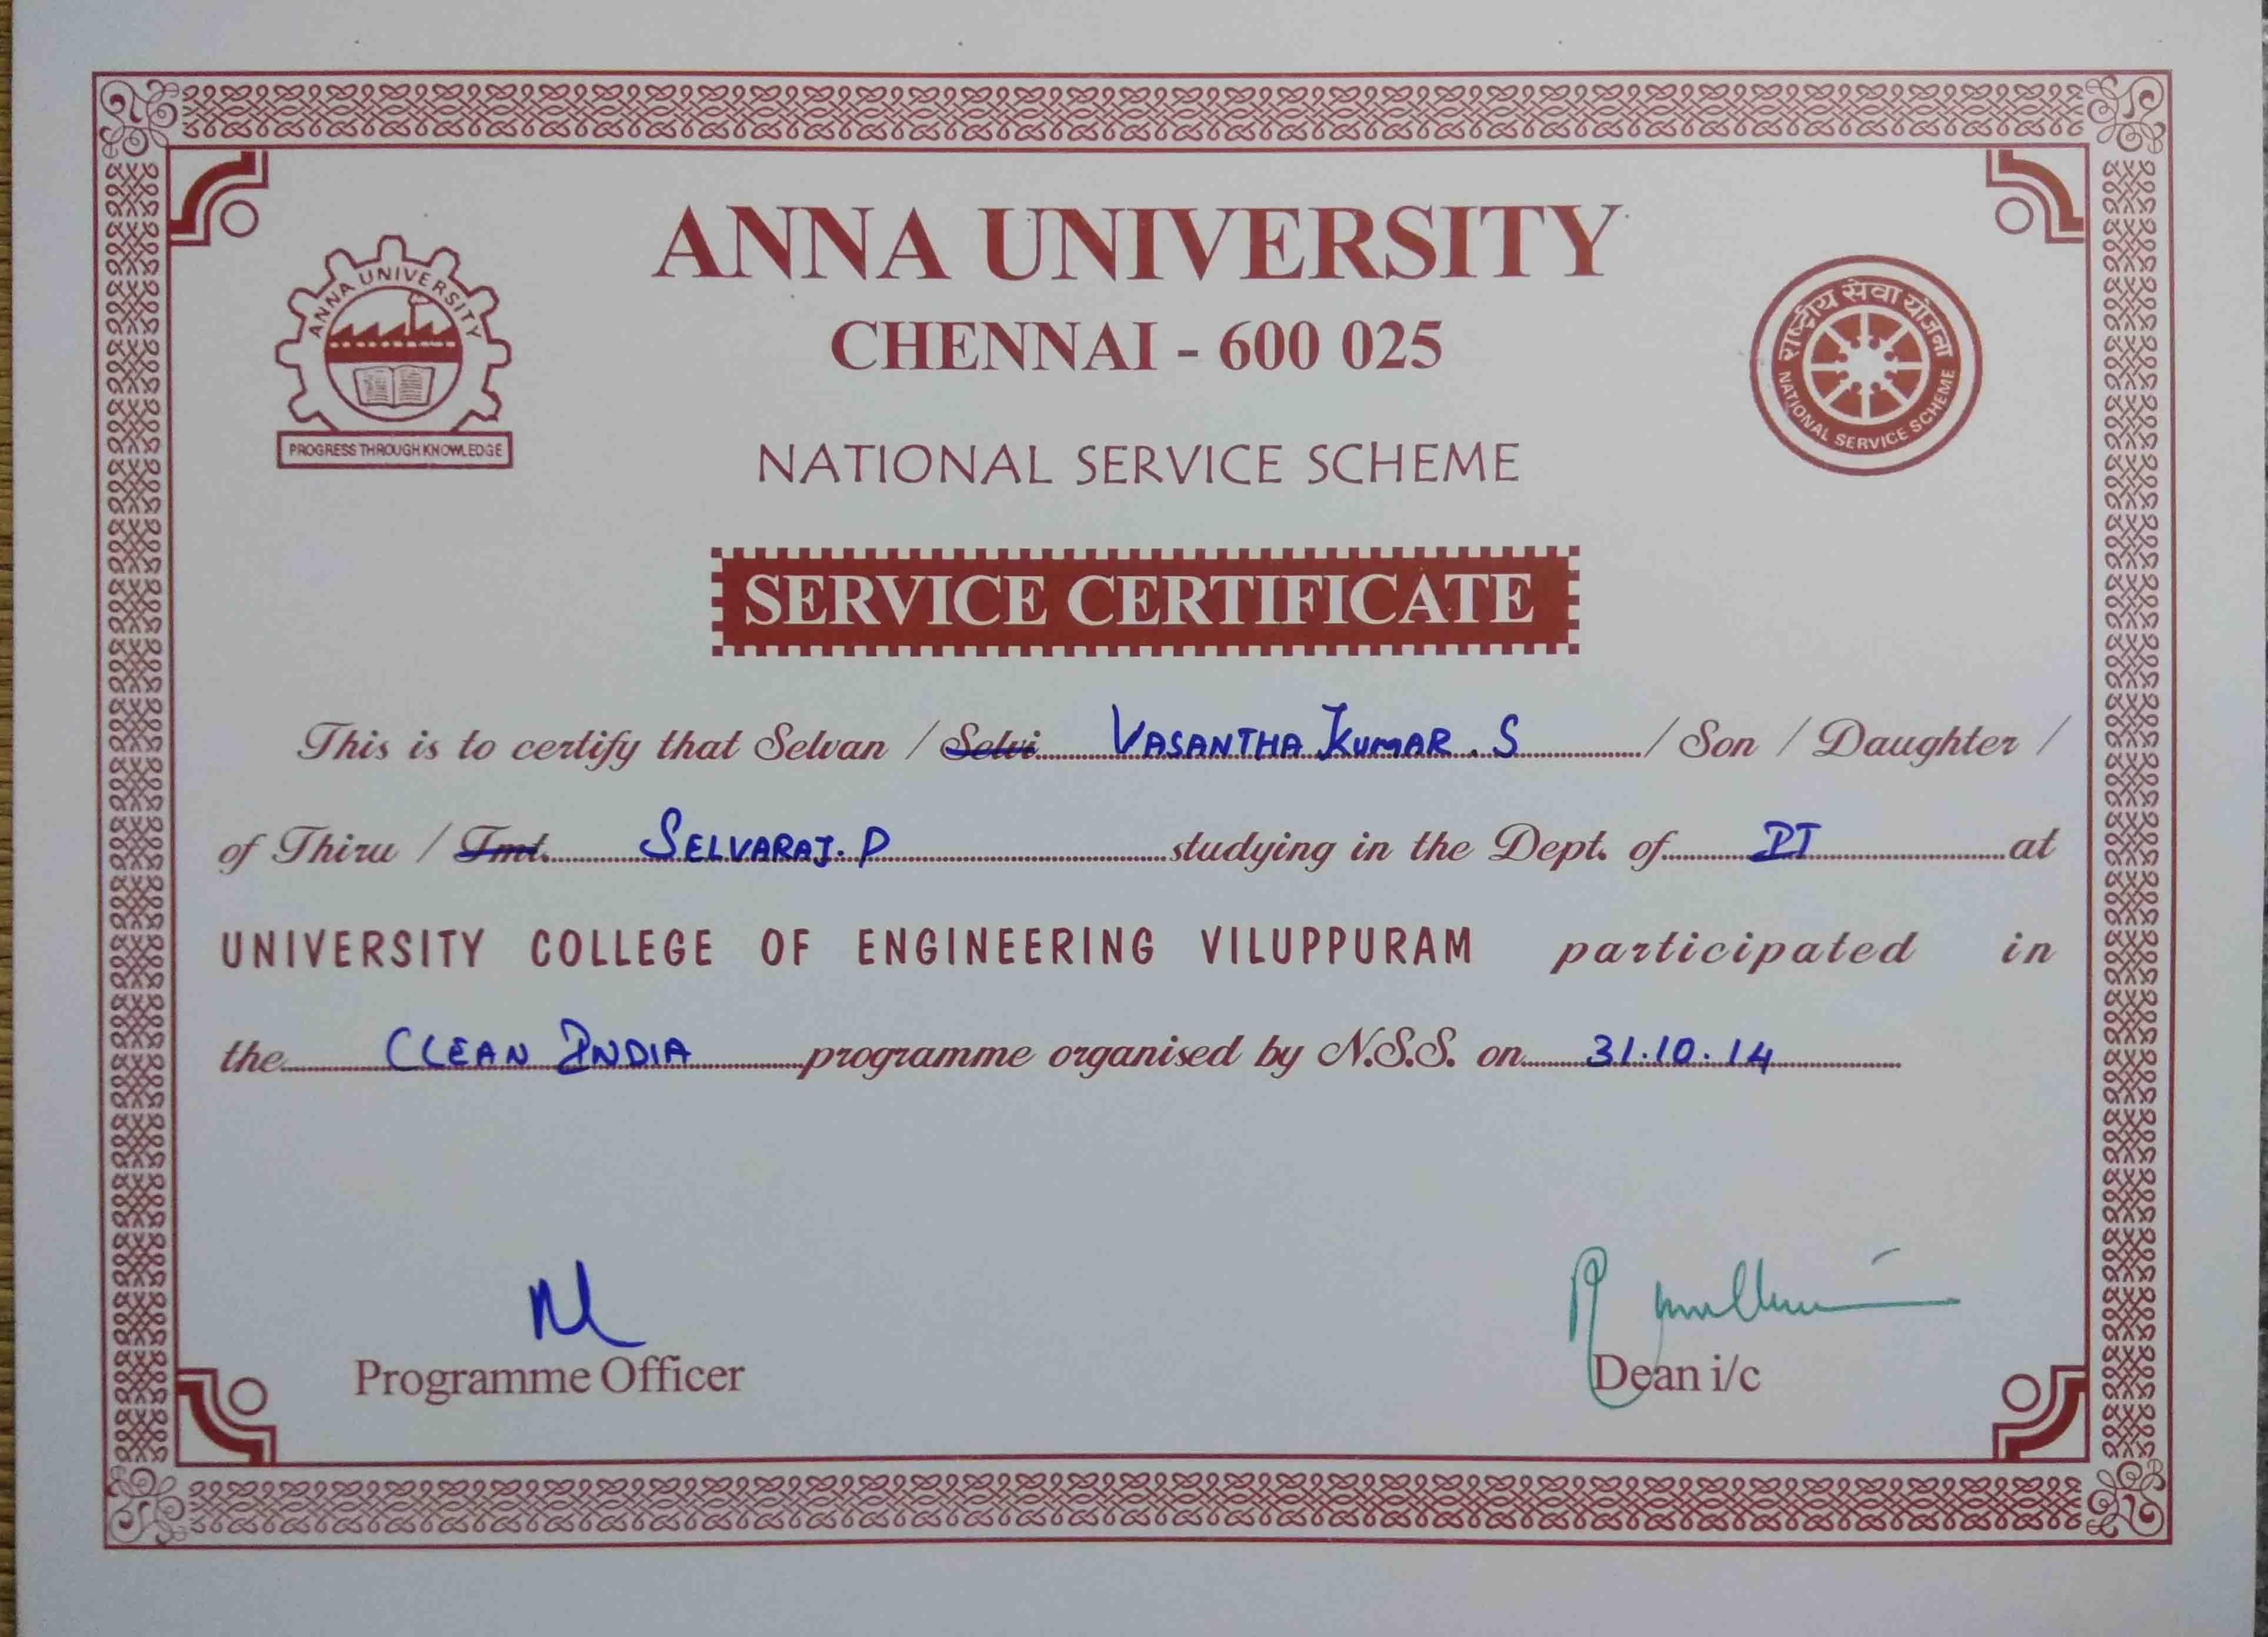 ANNA UNIVERSITY
CHENNAI - 600 025
ANNA UNIVERSITY
PROGRESS THROUGH KNOWLEDGE
राष्ट्रीय सेवा योजना
NATIONAL SERVICE SCHEME
NATIONAL SERVICE SCHEME
SERVICE CERTIFICATE
This is to certify that Selvan / Selvi VASANTHA KUMAR . S / Son / Daughter /
of Thiru / Tmt. SELVARAJ. P studying in the Dept. of IT at
UNIVERSITY COLLEGE OF ENGINEERING VILUPPURAM participated in
the CLEAN INDIA programme organised by N.S.S. on 31.10.14
Programme Officer
Dean i/c